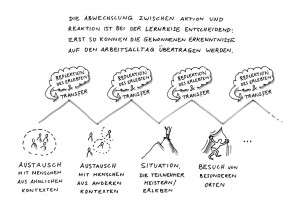 DIE ABWECHSLUNG ZWISCHEN AKTION UND
REAKTION IST BEI DER LERNREISE ENTSCHEIDEND:
ERST SO KÖNNEN DIE GEWONNENEN ERKENNTNISSE
AUF DEN ARBEITSALLTAG ÜBERTRAGEN WERDEN.
REFLEKTION
DES ERLEBTEN
&
TRANSFER
REFLEKTION
DES ERLEBTEN
&
TRANSFER
REFLEKTION
DES ERLEBTEN
&
TRANSFER
REFLEKTION
DES ERLEBTEN
&
TRANSFER
...
AUSTAUSCH
MIT MENSCHEN
AUS ÄHNLICHEN
KONTEXTEN
AUSTAUSCH
MIT MENSCHEN
AUS ANDEREN
KONTEXTEN
SITUATION,
DIE TEILNEHMER
MEISTERN/
ERLEBEN
BESUCH VON
BESONDEREN
ORTEN